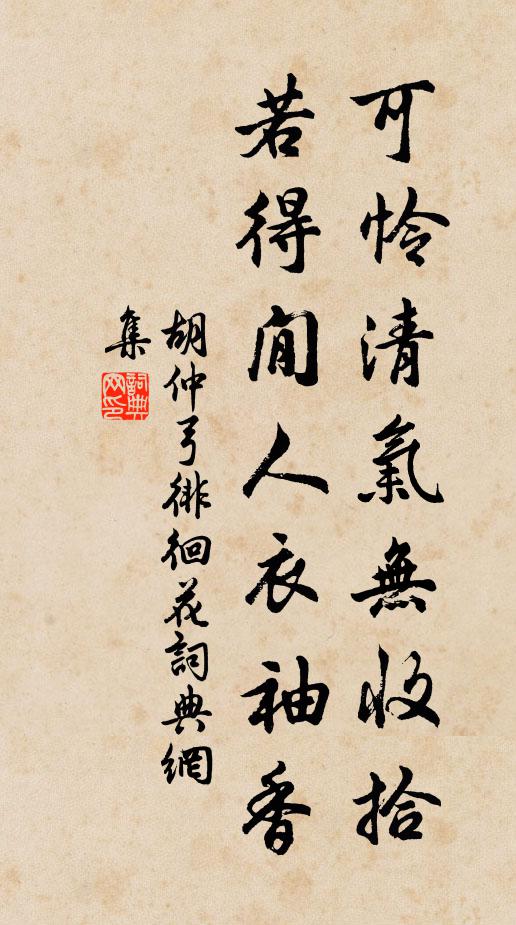 可怜清氣無收拾
若得閒人衣袖香
胡仲弓徘徊花詞典網
集
詞典网印